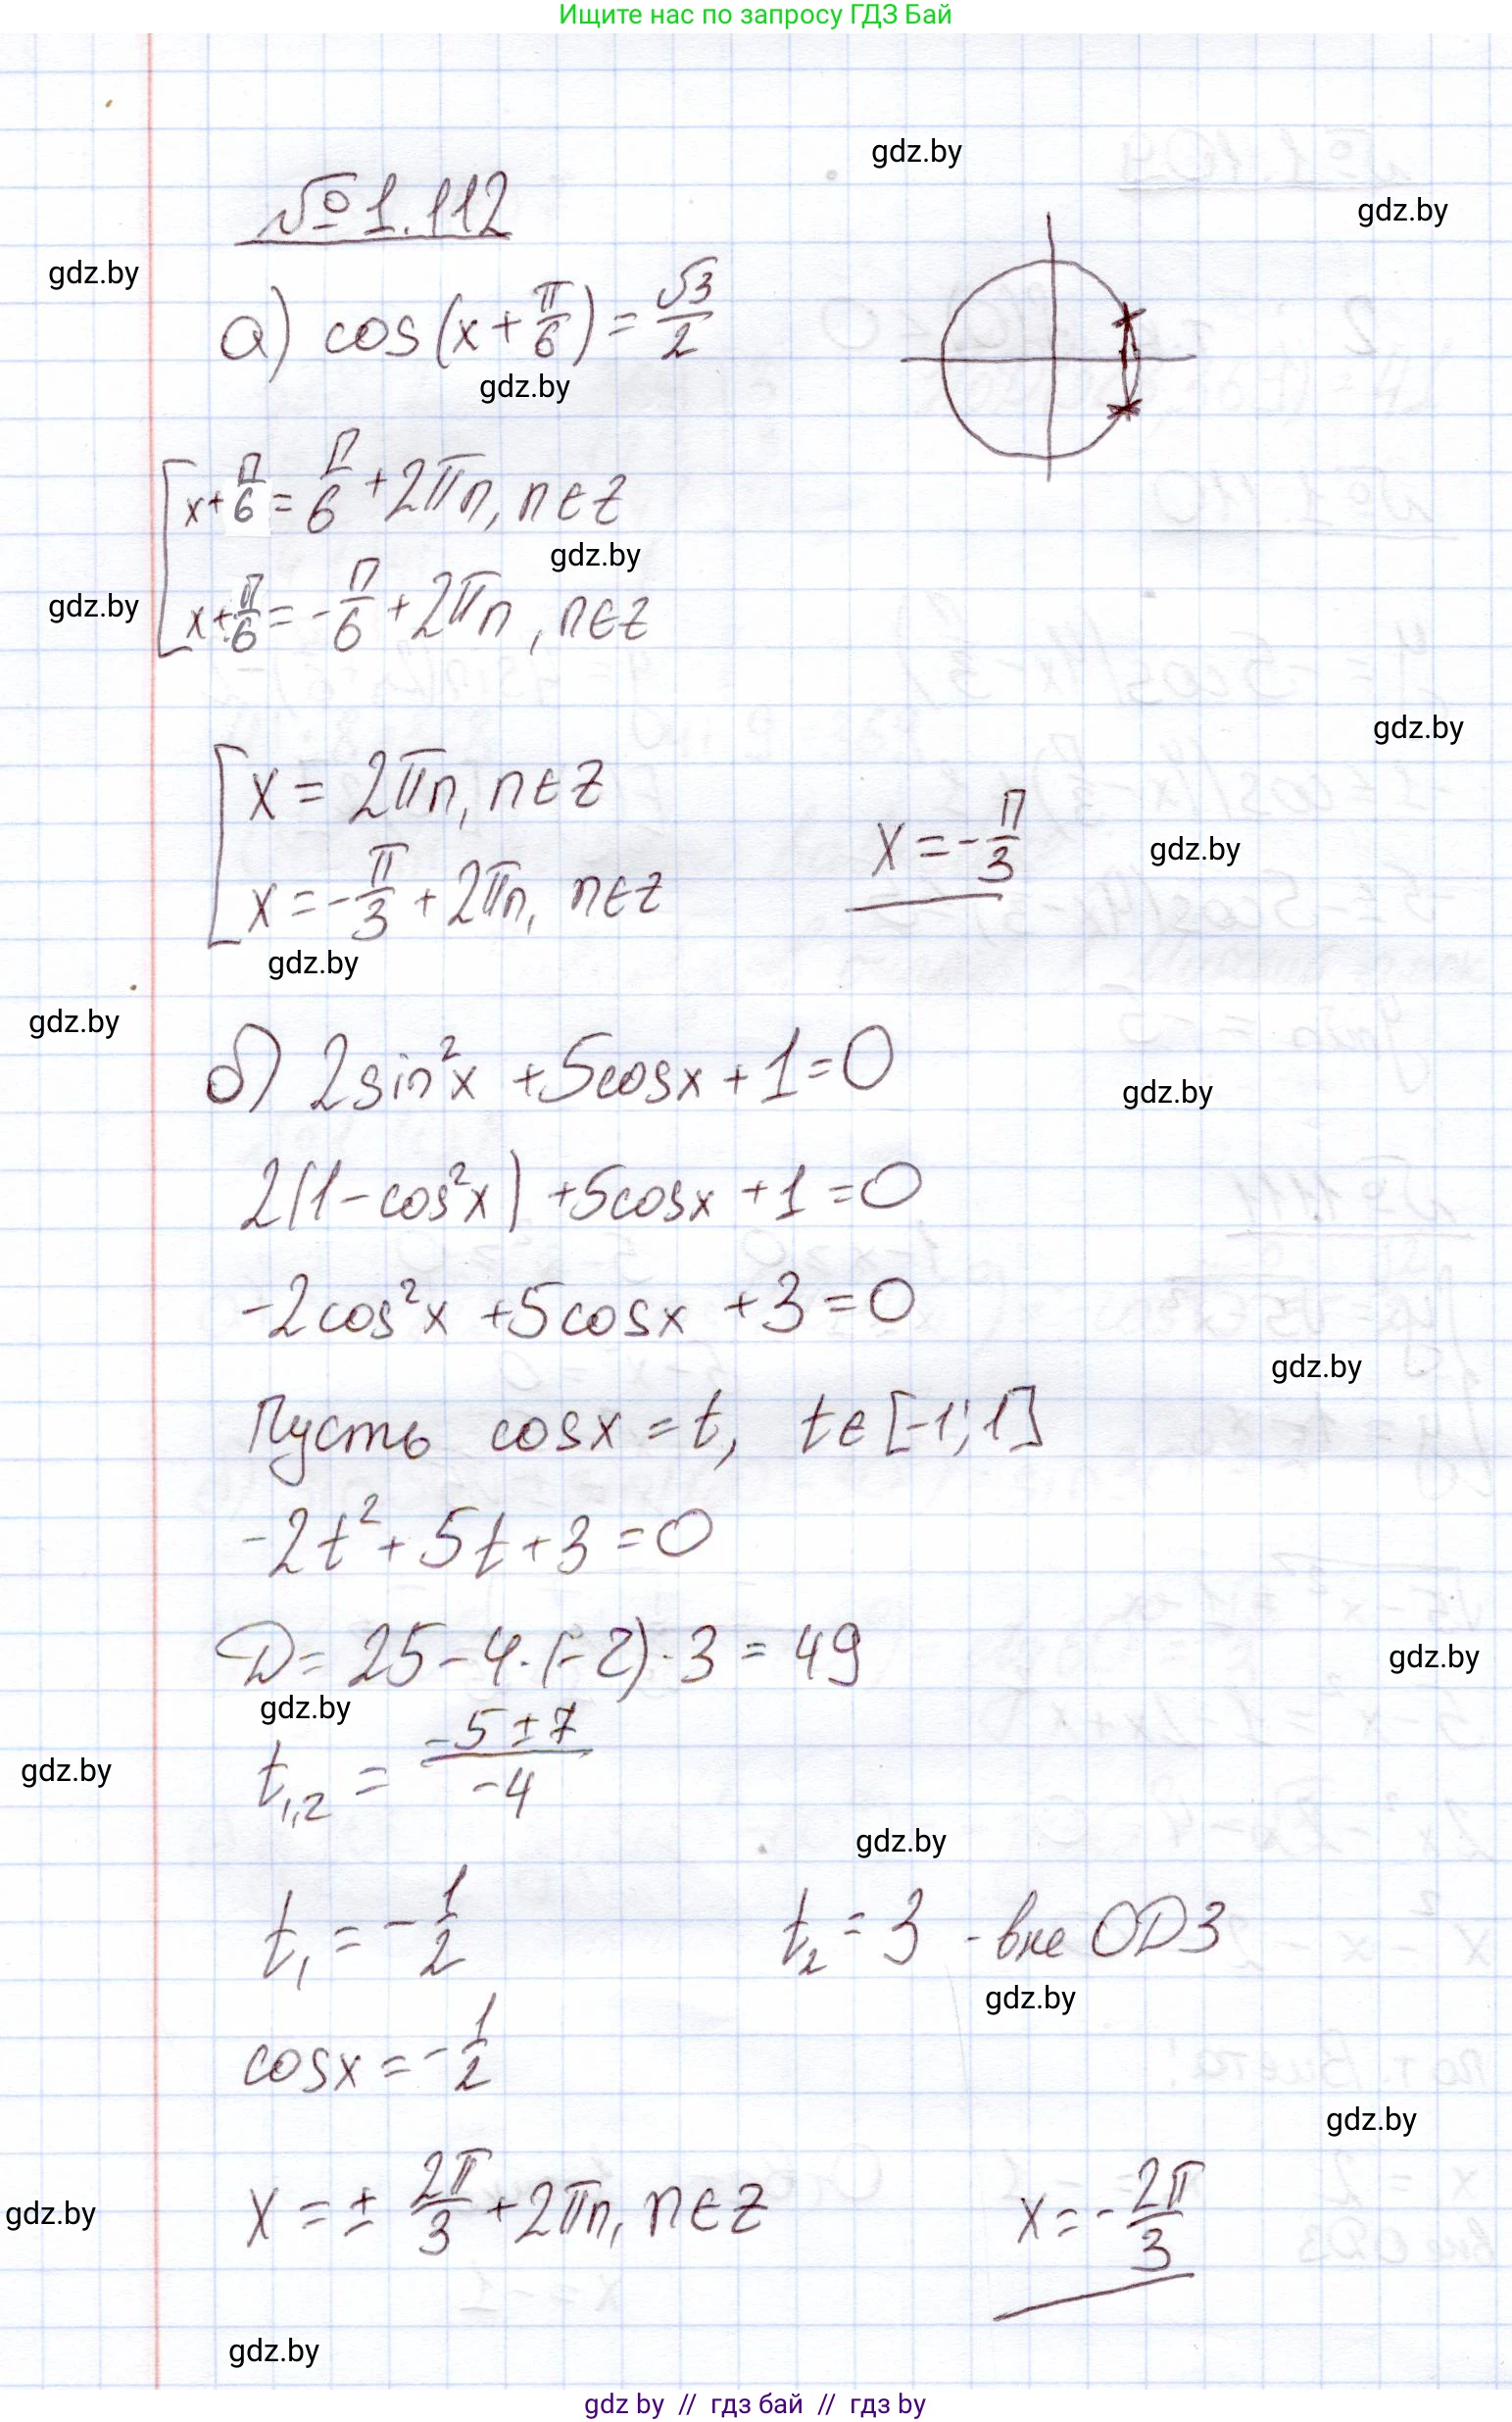 Ищите нас по запросу ГДЗ Бай
gdz.by
№1.112
gdz.by
gdz.by
а) cos(x+π/6)=√3/2
gdz.by
[x+π/6=π/6+2πn, n∈Z
gdz.by
gdz.by
x+π/6=-π/6+2πn, n∈Z
gdz.by
[x=2πn, n∈Z
x=-π/3
gdz.by
x=-π/3+2πn, n∈Z
gdz.by
gdz.by
б) 2sin²x+5cosx+1=0
gdz.by
2(1-cos²x)+5cosx+1=0
-2cos²x+5cosx+3=0
gdz.by
Пусть cosx=t, t∈[-1;1]
-2t²+5t+3=0
D=25-4·(-2)·3=49
gdz.by
gdz.by
t1,2=(-5±7)/-4
gdz.by
gdz.by
t1=-1/2 t2=3 -вне ОДЗ
gdz.by
cosx=-1/2
gdz.by
x=±2π/3+2πn, n∈Z x=-2π/3
gdz.by
gdz.by
gdz by // гдз бай // гдз by